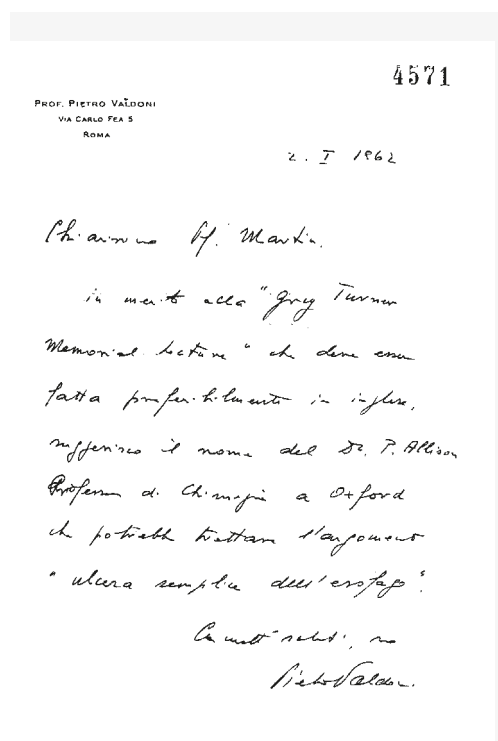 4571
PROF. PIETRO VALDONI
VIA CARLO FEA 5
ROMA
2. I 1962
Chiarissimo Pf. Martin.
in merito alla "Grey Turner
Memorial Lecture" che deve essere
fatta preferibilmente in inglese,
suggerisco il nome del Dr. P. Allison
Professore di Chirurgia a Oxford
che potrebbe trattare l'argomento
"ulcera semplice dell'esofago".
Con molti saluti, suo
Pietro Valdoni.